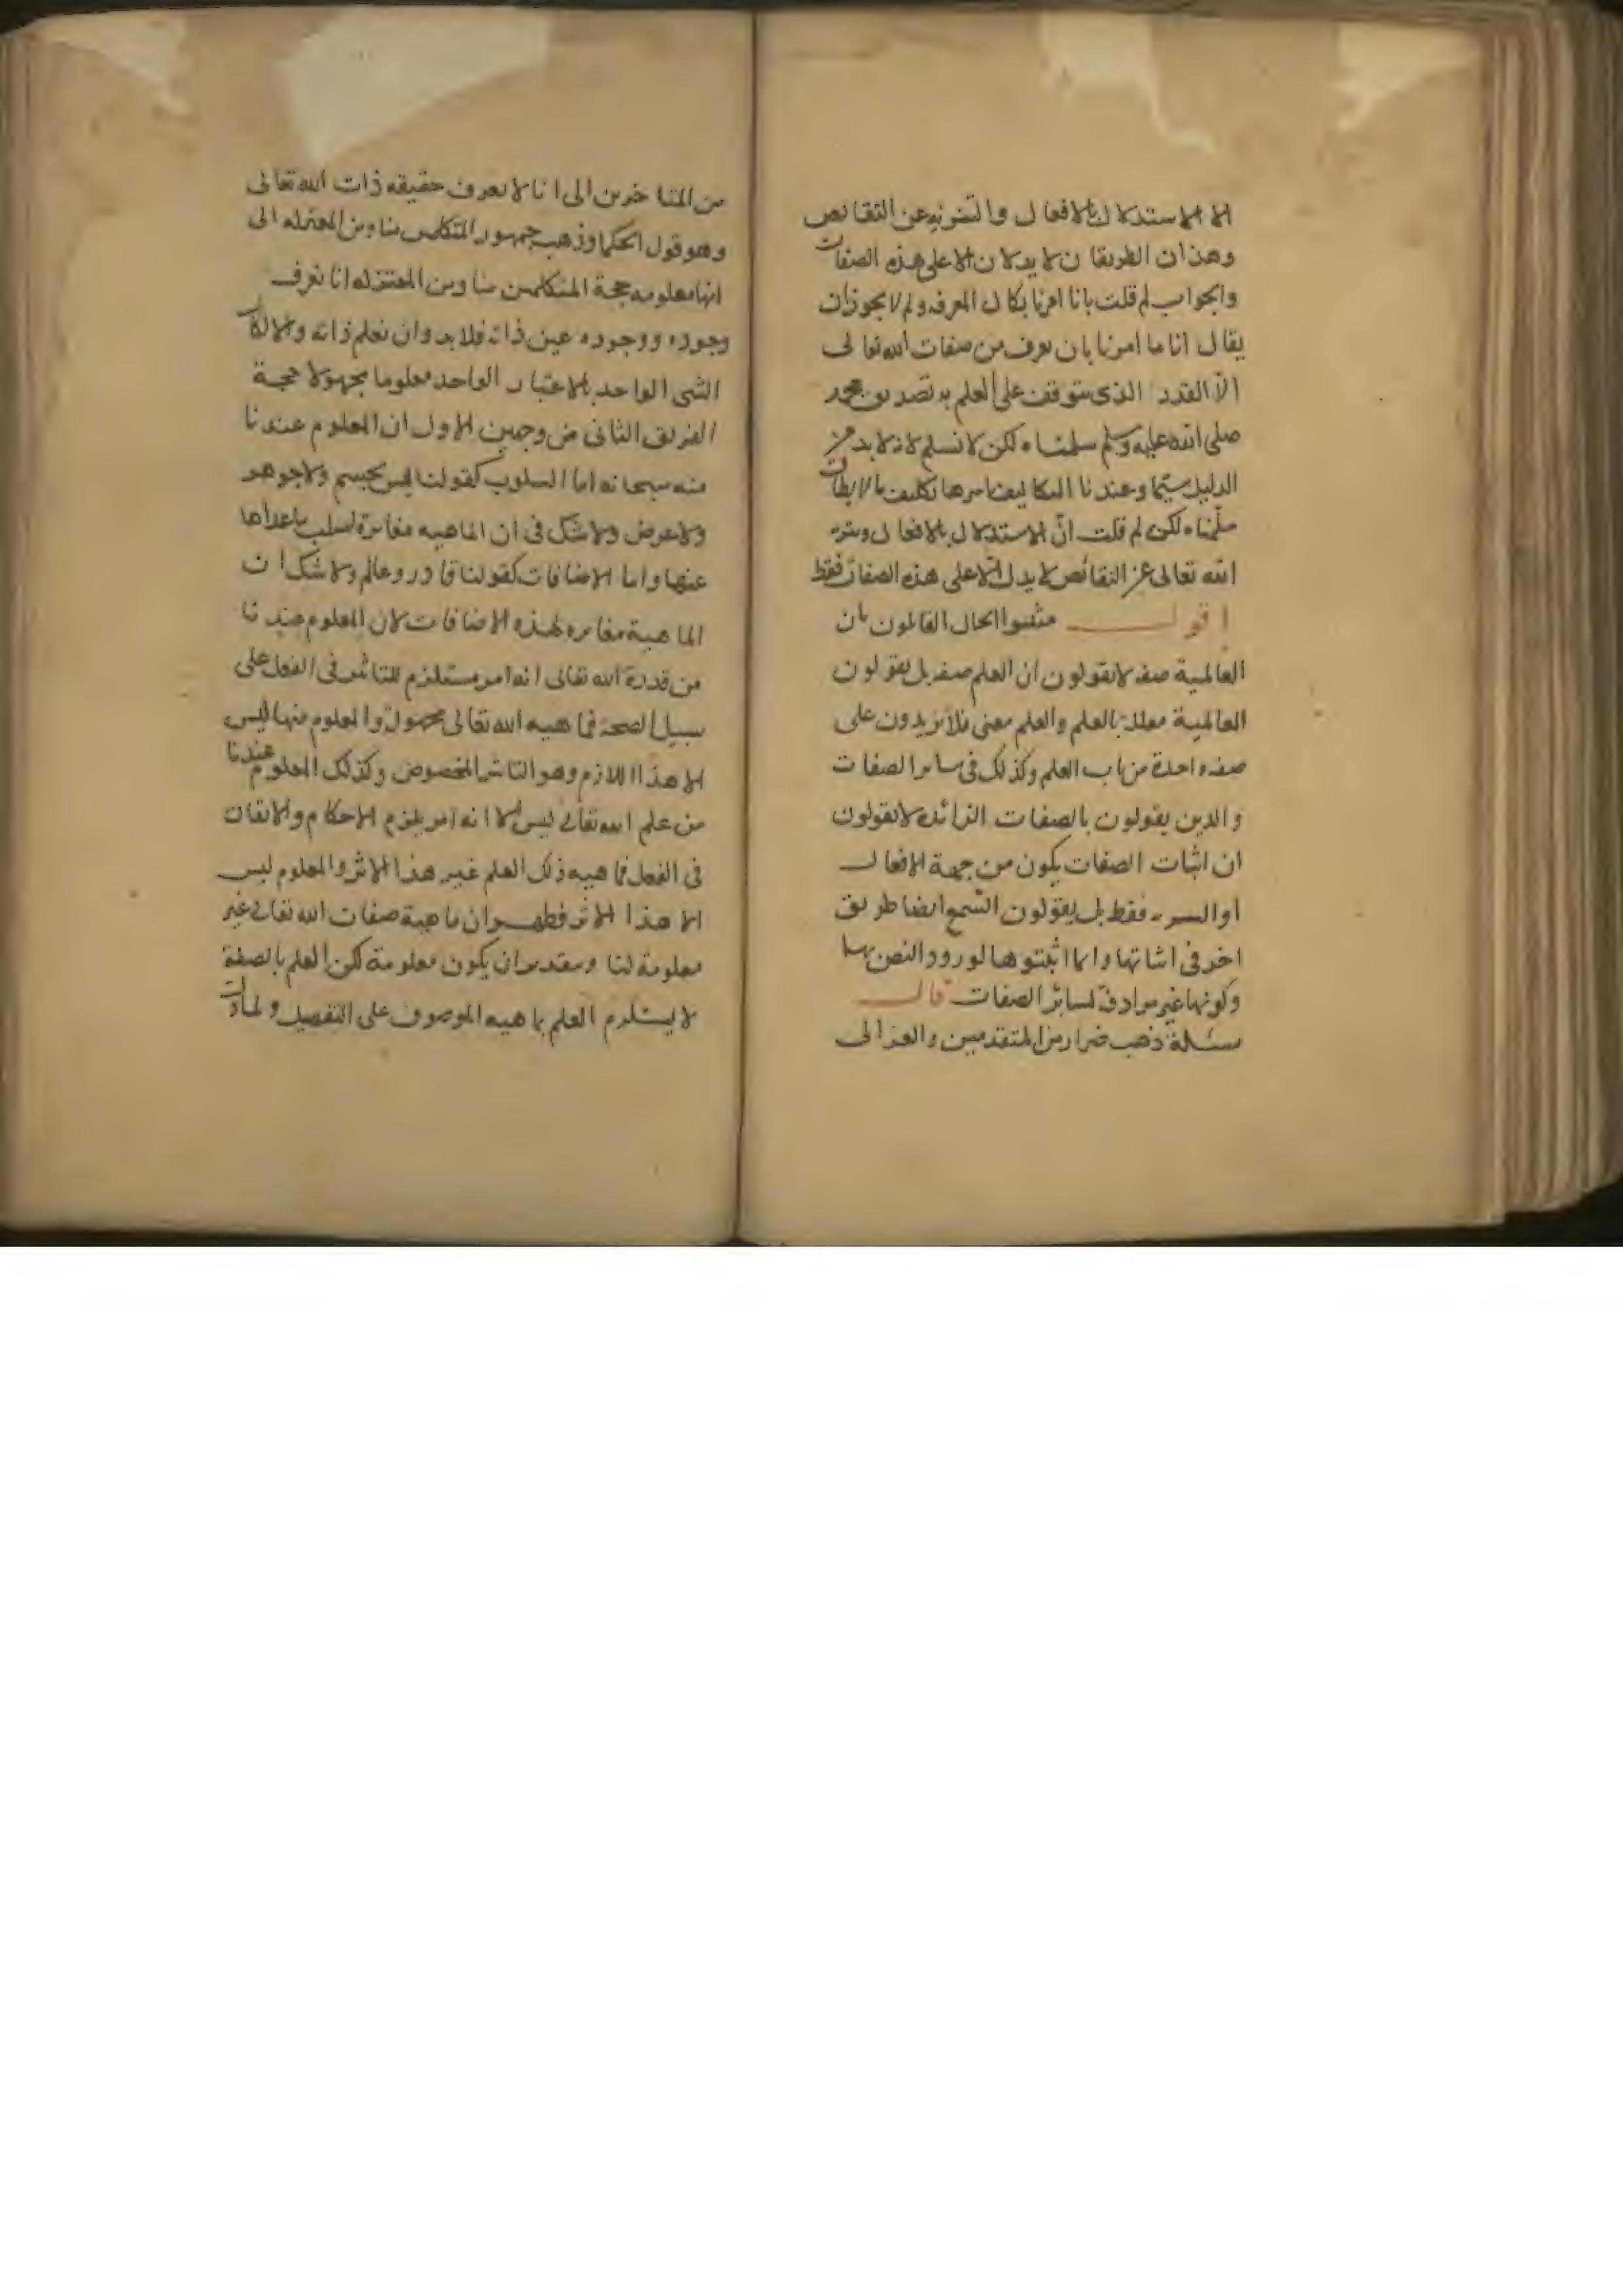 الا الاستدلال بالافعال والتنزيه عن النقائص
وهذان الطريقان لا يدلان الا على هذه الصفات
والجواب لم قلت بانا امرنا بكمال المعرفه ولم لا يجوز ان
يقال انا ما امرنا بان نعرف من صفات الله تعالى
الا القدر الذى يتوقف على العلم به تصديق محمد
صلى الله عليه وسلم سلمناه لكن لا نسلم لانه لا بد من
الدليل سيما وعندنا التكاليف باسرها تكليف ما لا يطاق
سلمناه لكن لم قلت ان الاستدلال بالافعال وتنزيه
الله تعالى عن النقائص لا يدل الا على هذه الصفات فقط
اقول مثبتوا الحال القائلون بان
العالمية صفه لا يقولون ان العلم صفه بل يقولون
العالمية معللة بالعلم والعلم معنى فلا يزيدون على
صفه واحدة من باب العلم وكذلك فى سائر الصفات
والذين يقولون بالصفات الزائدة لا يقولون
ان اثبات الصفات يكون من جهة الافعال
او التنزيه فقط بل يقولون السمع ايضا طريق
اخر فى اثباتها وانما اثبتوها لورود النص بها
وكونها غير مرادفة لسائر الصفات قال
مسئلة ذهب ضرار من المتقدمين والغزالى
من المتاخرين الى انا لا نعرف حقيقه ذات الله تعالى
وهو قول الحكما وذهب جمهور المتكلمين منا ومن المعتزله الى
انها معلومه حجة المتكلمين منا ومن المعتزله انا نعرف
وجوده ووجوده عين ذاته فلا بد وان نعلم ذاته والا لكان
الشى الواحد بالاعتبار الواحد معلوما مجهولا حجة
الفريق الثانى من وجهين الاول ان المعلوم عندنا
منه سبحانه اما السلوب كقولنا ليس بجسم ولا جوهر
ولا عرض ولا شك فى ان الماهيه مغايرة لسلب ما عداها
عنها واما الاضافات كقولنا قادر وعالم ولا شك ان
الماهية مغايره لهذه الاضافات لان المعلوم عندنا
من قدرة الله تعالى انه امر مستلزم للتاثير فى الفعل على
سبيل الصحة فماهيه الله تعالى مجهولة والمعلوم منها ليس
الا هذا اللازم وهو التاثير المخصوص وكذلك المعلوم عندنا
من علم الله تعالى ليس الا انه امر يلزم الاحكام والاتقان
فى الفعل فماهيه ذلك العلم غير هذا الاثر والمعلوم ليس
الا هذا الاثر فظهر ان ماهية صفات الله تعالى غير
معلومة لنا وبتقدير ان يكون معلومة لكن العلم بالصفة
لا يستلزم العلم بماهيه الموصوف على التفصيل ولما دلت